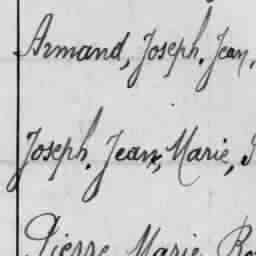 Armand, Joseph. Jean.
Joseph. Jean, Marie,
Pierre Marie